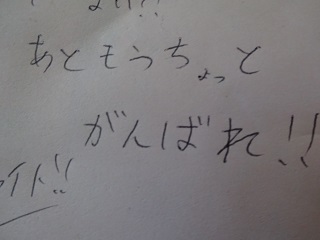 あともうちょっと
がんばれ!!
イト"!!